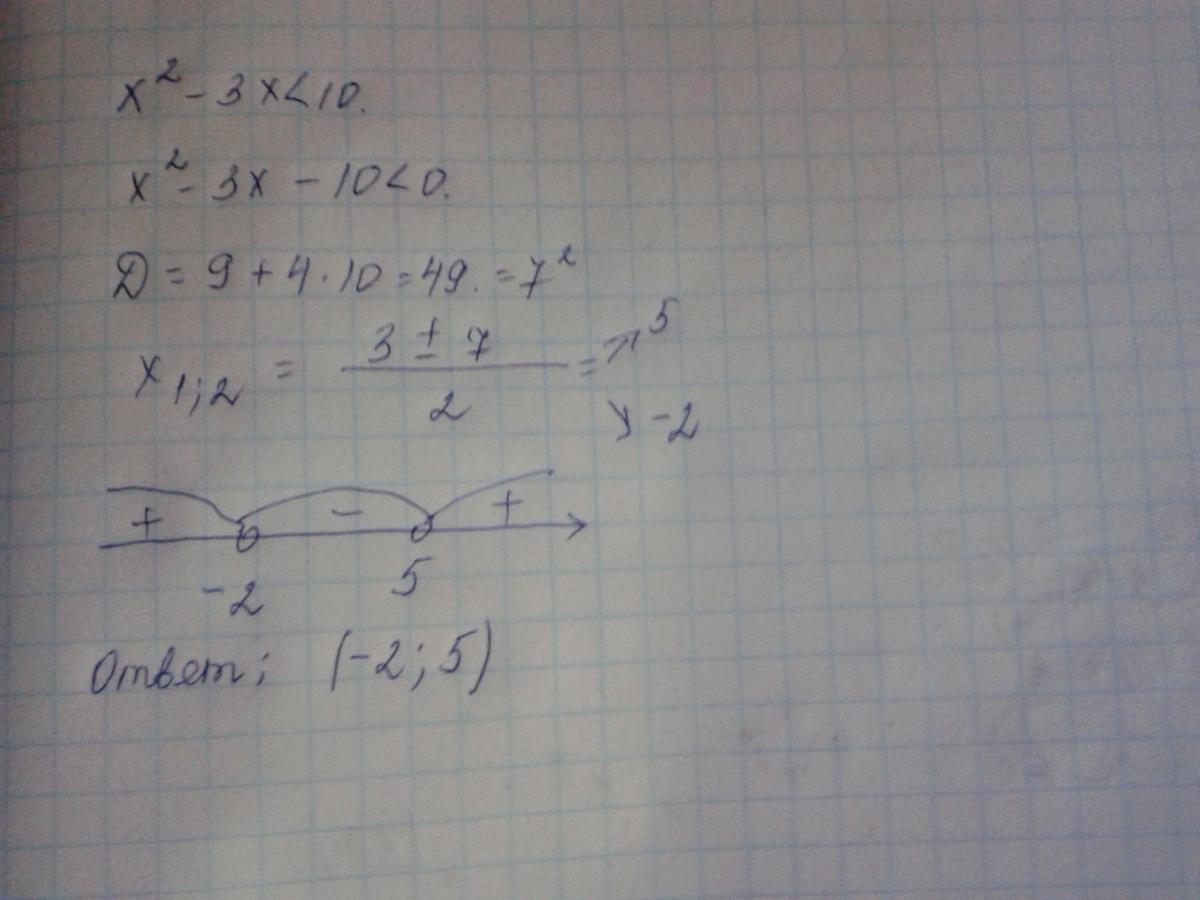 x² - 3x < 10.
x² - 3x - 10 < 0.
D = 9 + 4 · 10 = 49. = 7²
x₁;₂ = (3 ± 7)/2 = ↗ 5 ↘ -2
+ - +
-2 5
Ответ; (-2; 5)